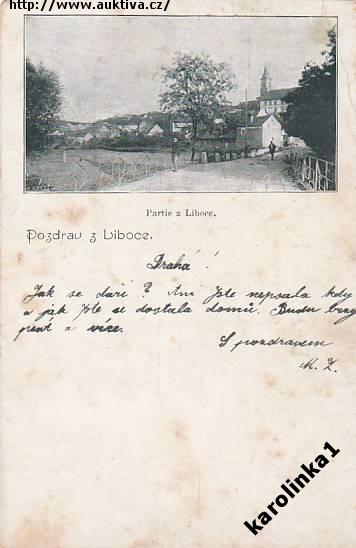 http://www.auktiva.cz/
Partie z Liboce.
Pozdrav z Liboce.
Drahá!
Jak se daří? Ani jste nepsala kdy
a jak jste se dostala domů. Budu brzy
psát a více.
S pozdravem
M. Z.
karolinka1